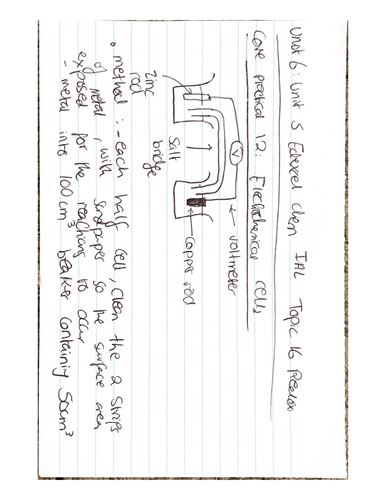 Unit 6: Unit 5 Edexcel Chem IAL Topic 16 Redox
Core practical 12: Electrochemical cells
V
voltmeter
salt
bridge
Zinc
rod
copper rod
• method: - each half cell, clean the 2 strips
of metal, with sandpaper so the surface area
exposed for the reactions to occur
- metal into 100cm³ beaker containing 50cm³